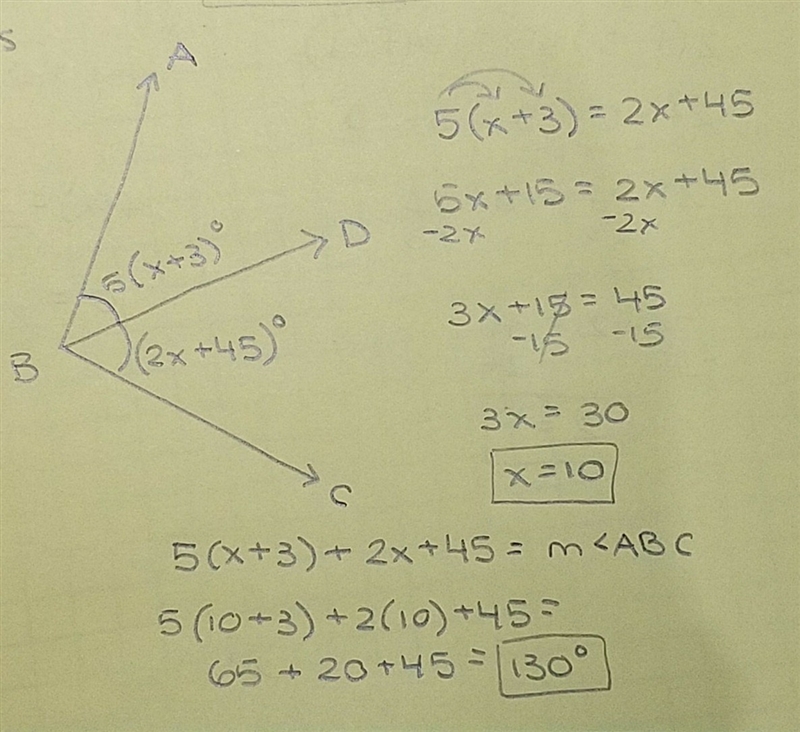 S
A
5(x+3) = 2x+45
5x+15 = 2x+45
-2x -2x
D
5(x+3)°
3x+15 = 45
-15 -15
(2x+45)°
B
3x = 30
x=10
C
5(x+3) + 2x+45 = m<ABC
5(10+3) + 2(10) +45 =
65 + 20 +45 = 130°